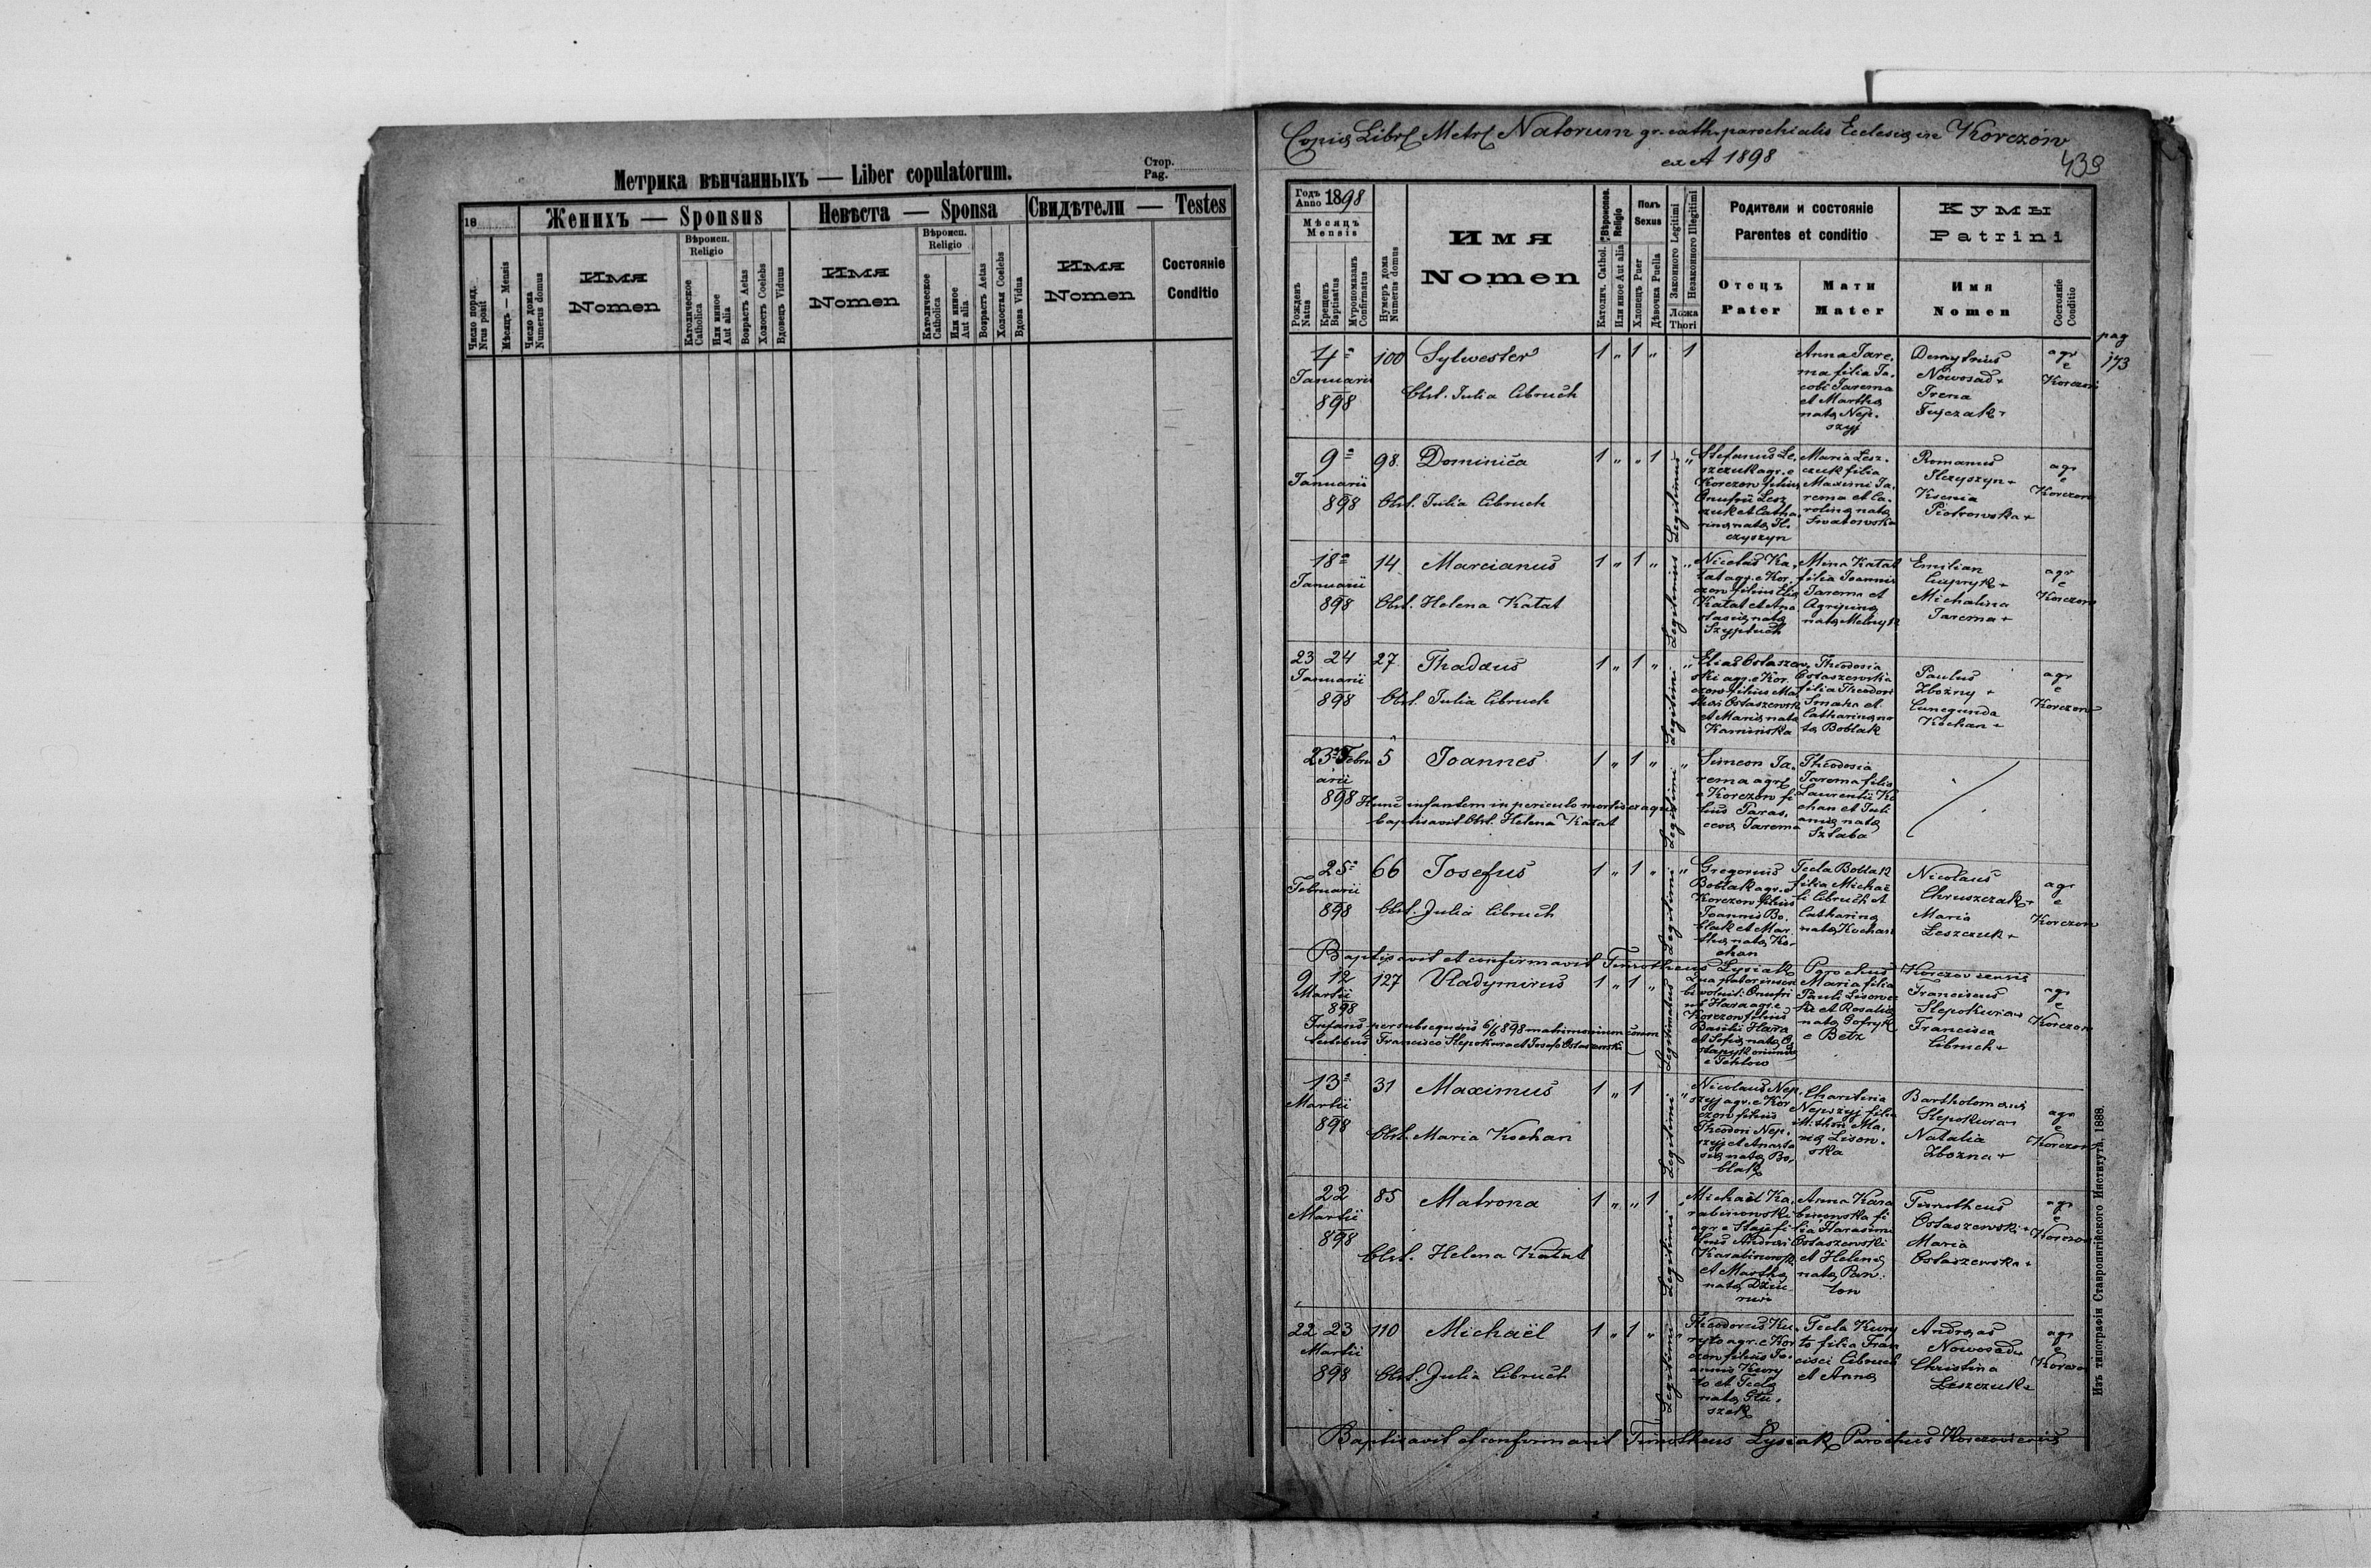 Метрика вѣнчанныхъ — Liber copulatorum.
Стор.
Pag.
18
Женихъ — Sponsus
Невѣста — Sponsa
Свидѣтели — Testes
Число поряд. Nrus posit
Мѣсяць — Mensis
Число дома Numerus domus
Имя
Nomen
Вѣроисп.
Religio
Католическое Catholica
Или иное Aut alia
Возрастъ Aetas
Холостъ Coelebs
Вдовецъ Viduus
Имя
Nomen
Вѣроисп.
Religio
Католическое Catholica
Или инное Aut alia
Возрастъ Aetas
Холостая Coelebs
Вдова Vidua
Имя
Nomen
Состояніе
Conditio
Copia Libri Metr. Natorum gr. cath. parochialis Ecclesiæ in Korczów
ex A 1898
439
Годъ
Anno 1898
Мѣсяцъ
Mensis
Рожденъ Natus
Крещенъ Baptisatus
Мѵропомазанъ Confirmatus
Нумеръ дома Numerus domus
Имя
Nomen
Вѣроиспов. Religio
Католич. Cathol.
Или иное Aut alia
Полъ
Sexus
Хлопецъ Puer
Дѣвочка Puella
Законного Legitimi
Незаконного Illegitimi
Ложа
Thori
Родители и состояніе
Parentes et conditio
Отецъ
Pater
Мати
Mater
Кумы
Patrini
Имя
Nomen
Состояніе
Conditio
pag
173
4 Januarii 898
100 Sylwester
Obst. Julia Cibruch
1 „ 1 „ 1
Anna Jare.
ma filia Ja.
cobi Jarema
et Martha
nata Nep.
szyj
Demytrius
Nowosad +
Irena
agr
e
Korczow
9 Januarii 898
98 Dominica
Obst. Julia Cibruch
1 „ „ 1 „
Stefanus Le.
szczuk agr. e
Korczow filius
Onufrii Lesz
czuk et Catha.
rina nata Sl.
czyszyn
Maria Lesz.
czuk filia
Maximi Ja.
rema et Ca.
rolina nata
Romanus
Ksenia
Piotrowska +
agr
e
Korczow
18 Januarii 898
14 Marcianus
Obst. Helena Katat
1 „ 1 „ „
Nicolaus Ka.
tat agr. e Kor.
czow filius Elia
Katat et Ana
stasia nata
Mina Katat
filia Joannis
Jarema et
Agripina
nata Melnyk
Emilian
Michalina
Jarema +
agr
e
Korczow
23 24 Januarii 898
27 Thadæus
Obst. Julia Cibruch
1 „ 1 „ „
Elias Ostaszew.
ski agr. e Kor.
czow filius Mat
thæi Ostaszewsk
et Maria nata
Kaminska
Theodosia
Ostaszewska
filia Theodori
Smaha et
Catharina na
ta Boblak
Paulus
Zbozny +
Cunegunda
Kochan +
agr
e
Korczow
23 Febru
arii
898
5 Joannes
Hunc infantem in periculo mortis ex aqua
baptisavit Obst. Helena Katat
1 „ 1 „ „
Simeon Ja.
rema agr.
e Korczow fi
lius Taras.
Jarema
Theodosia
Jarema filia
Laurentii Ko
chan et Juli
anna nata
Szlaba
25 Februarii 898
66 Josefus
Obst. Julia Cibruch
1 „ 1 „ „
Gregorius
Boblak agr. e
Korczow filius
Joannis Bo.
blak et Mar.
tha nata Ko.
chan
Tecla Boblak
filia Michaë
li Cibruch et
Catharina
nata Kochan
Nicolaus
Chruszczak +
Maria
Leszczuk +
agr
e
Korczow
Baptisavit et confirmavit Timotheus Lysiak Parochus Korczoviensis
9 12 Martii 898
127 Vladymirus
1 „ 1 „
Infans per subsequens 6/6 898 matrimonium coram
testibus Francisco Slepokura et Josefo Ostaszewski
Onufri
us Hara agr. e
Korczow filius
Basilii Hara
et Sofia nata
Maria filia
Pauli Lisowe
ki et Rosalia
nata
e Betz
Franciscus
Slepokura
Francisca
Cibruch +
agr
e
Korczow
13 Martii 898
31 Maximus
Obst. Maria Kochan
1 „ 1
Nicolaus Nep.
szyj agr. e Kor
czow filius
Theodori Nep.
szyj et Anasta
sia nata Bo.
blak
Charitina
Nepszyj filia
Lisow.
ska
Bartholomæus
Slepokura
Natalia
Zbozna +
agr
e
Korczow
22 Martii 898
85 Matrona
Obst. Helena Katat
1 „ „ 1 „
Michaël Ka.
rabinowski
agr. e Staje fi
lius Andreæ
Karabinowsk
et Martha
nata
Anna Kara
binowska fi
lia Harasimi
Ostaszewski
et Helena
nata Paw.
low
Timotheus
Ostaszewski +
Maria
Ostaszewska +
agr
e
Korczow
22 23 Martii 898
110 Michaël
Obst. Julia Cibruch
1 „ 1 „ „
Theodorus Ku.
ryto agr. e Kor
czow filius Jo.
annis Kury
to et Tecla
nata
Tecla Kury
to filia Fran
cisci Cibruch
et Anna
Andreas
Nowosad +
Christina
Leszczuk +
agr
e
Korczow
Baptisavit et confirmavit Timotheus Lysiak Parochus Korczoviensis
Изъ типографіи Ставропигійского Института. 1888.